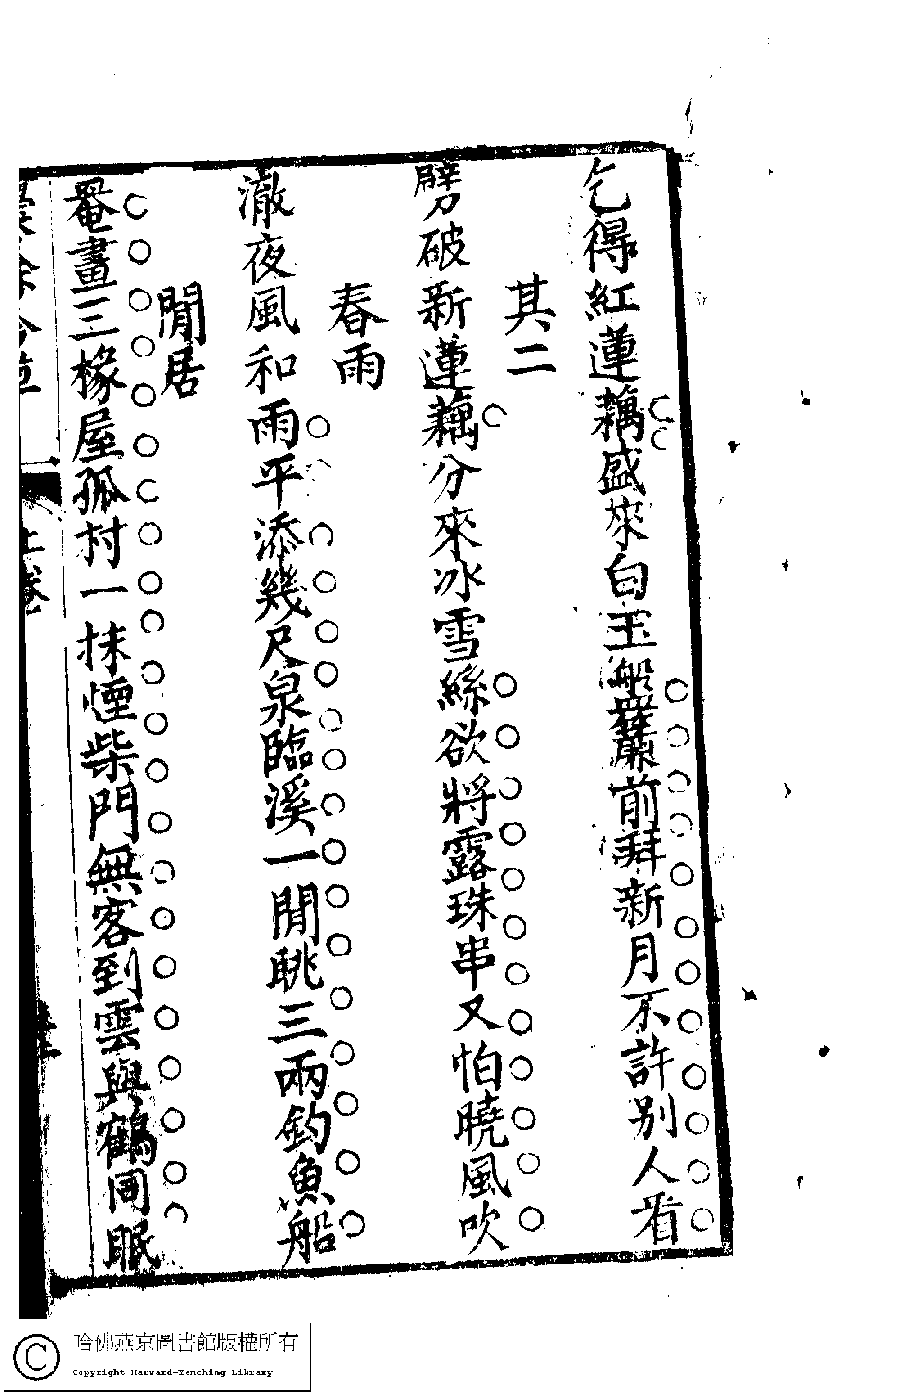 乞得紅蓮藕盛來白玉盤羅前拜新月不許別人看
其二
劈破新蓮藕分來冰雪絲欲將露珠串又怕曉風吹
春雨
澈夜風和雨平添幾尺泉臨溪一閒眺三兩釣魚船
閒居
罨畫三椽屋孤村一抹煙柴門無客到雲與鶴同眠
上卷
哈佛燕京圖書館版權所有
Copyright Harvard-Yenching Library